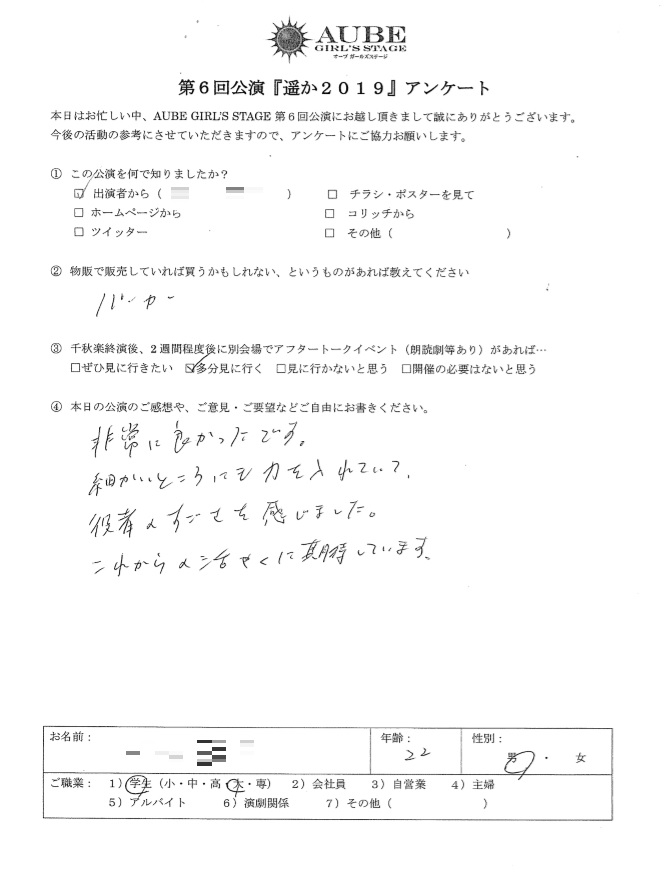 AUBE
GIRL'S STAGE
オーブ ガールズステージ
第6回公演『遥か2019』アンケート
本日はお忙しい中、AUBE GIRL'S STAGE 第6回公演にお越し頂きまして誠にありがとうございます。
今後の活動の参考にさせていただきますので、アンケートにご協力お願いします。
① この公演を何で知りましたか？
☑ 出演者から（ ） □ チラシ・ポスターを見て
□ ホームページから □ コリッチから
□ ツイッター □ その他（ ）
② 物販で販売していれば買うかもしれない、というものがあれば教えてください
パーカー
③ 千秋楽終演後、2週間程度後に別会場でアフタートークイベント（朗読劇等あり）があれば…
□ぜひ見に行きたい ☑多分見に行く □見に行かないと思う □開催の必要はないと思う
④ 本日の公演のご感想や、ご意見・ご要望などご自由にお書きください。
非常に良かったです。
細かいところにも力を入れていて、
役者のすごさを感じました。
これからの活やくに期待しています。
お名前： 年齢： 22 性別： 男 ・ 女
ご職業： 1）学生（小・中・高・大・専） 2）会社員 3）自営業 4）主婦
5）アルバイト 6）演劇関係 7）その他（ ）